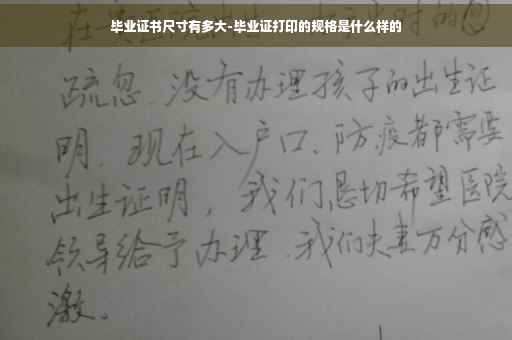 毕业证书尺寸有多大-毕业证打印的规格是什么样的
疏忽.没有办理孩子的出生证
明.现在入户口、防疫都需要
出生证明，我们恳切希望医院
领导给予办理.我们夫妻万分感
激。